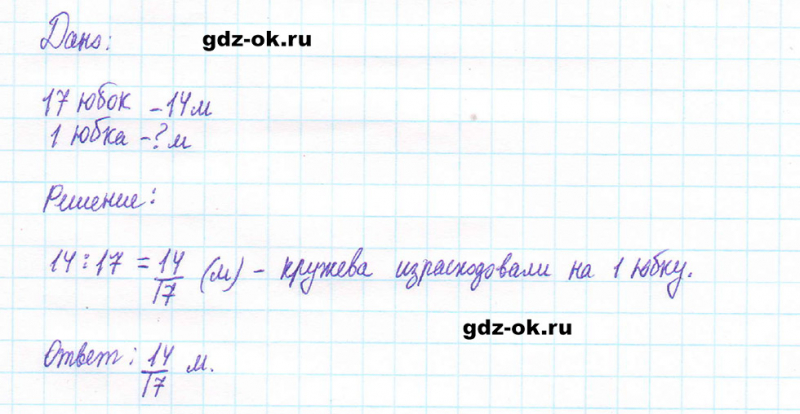 Дано:
gdz-ok.ru
17 юбок - 14 м
1 юбка - ? м
Решение:
14 : 17 = 14/17 (м) - кружева израсходовали на 1 юбку.
gdz-ok.ru
Ответ: 14/17 м.